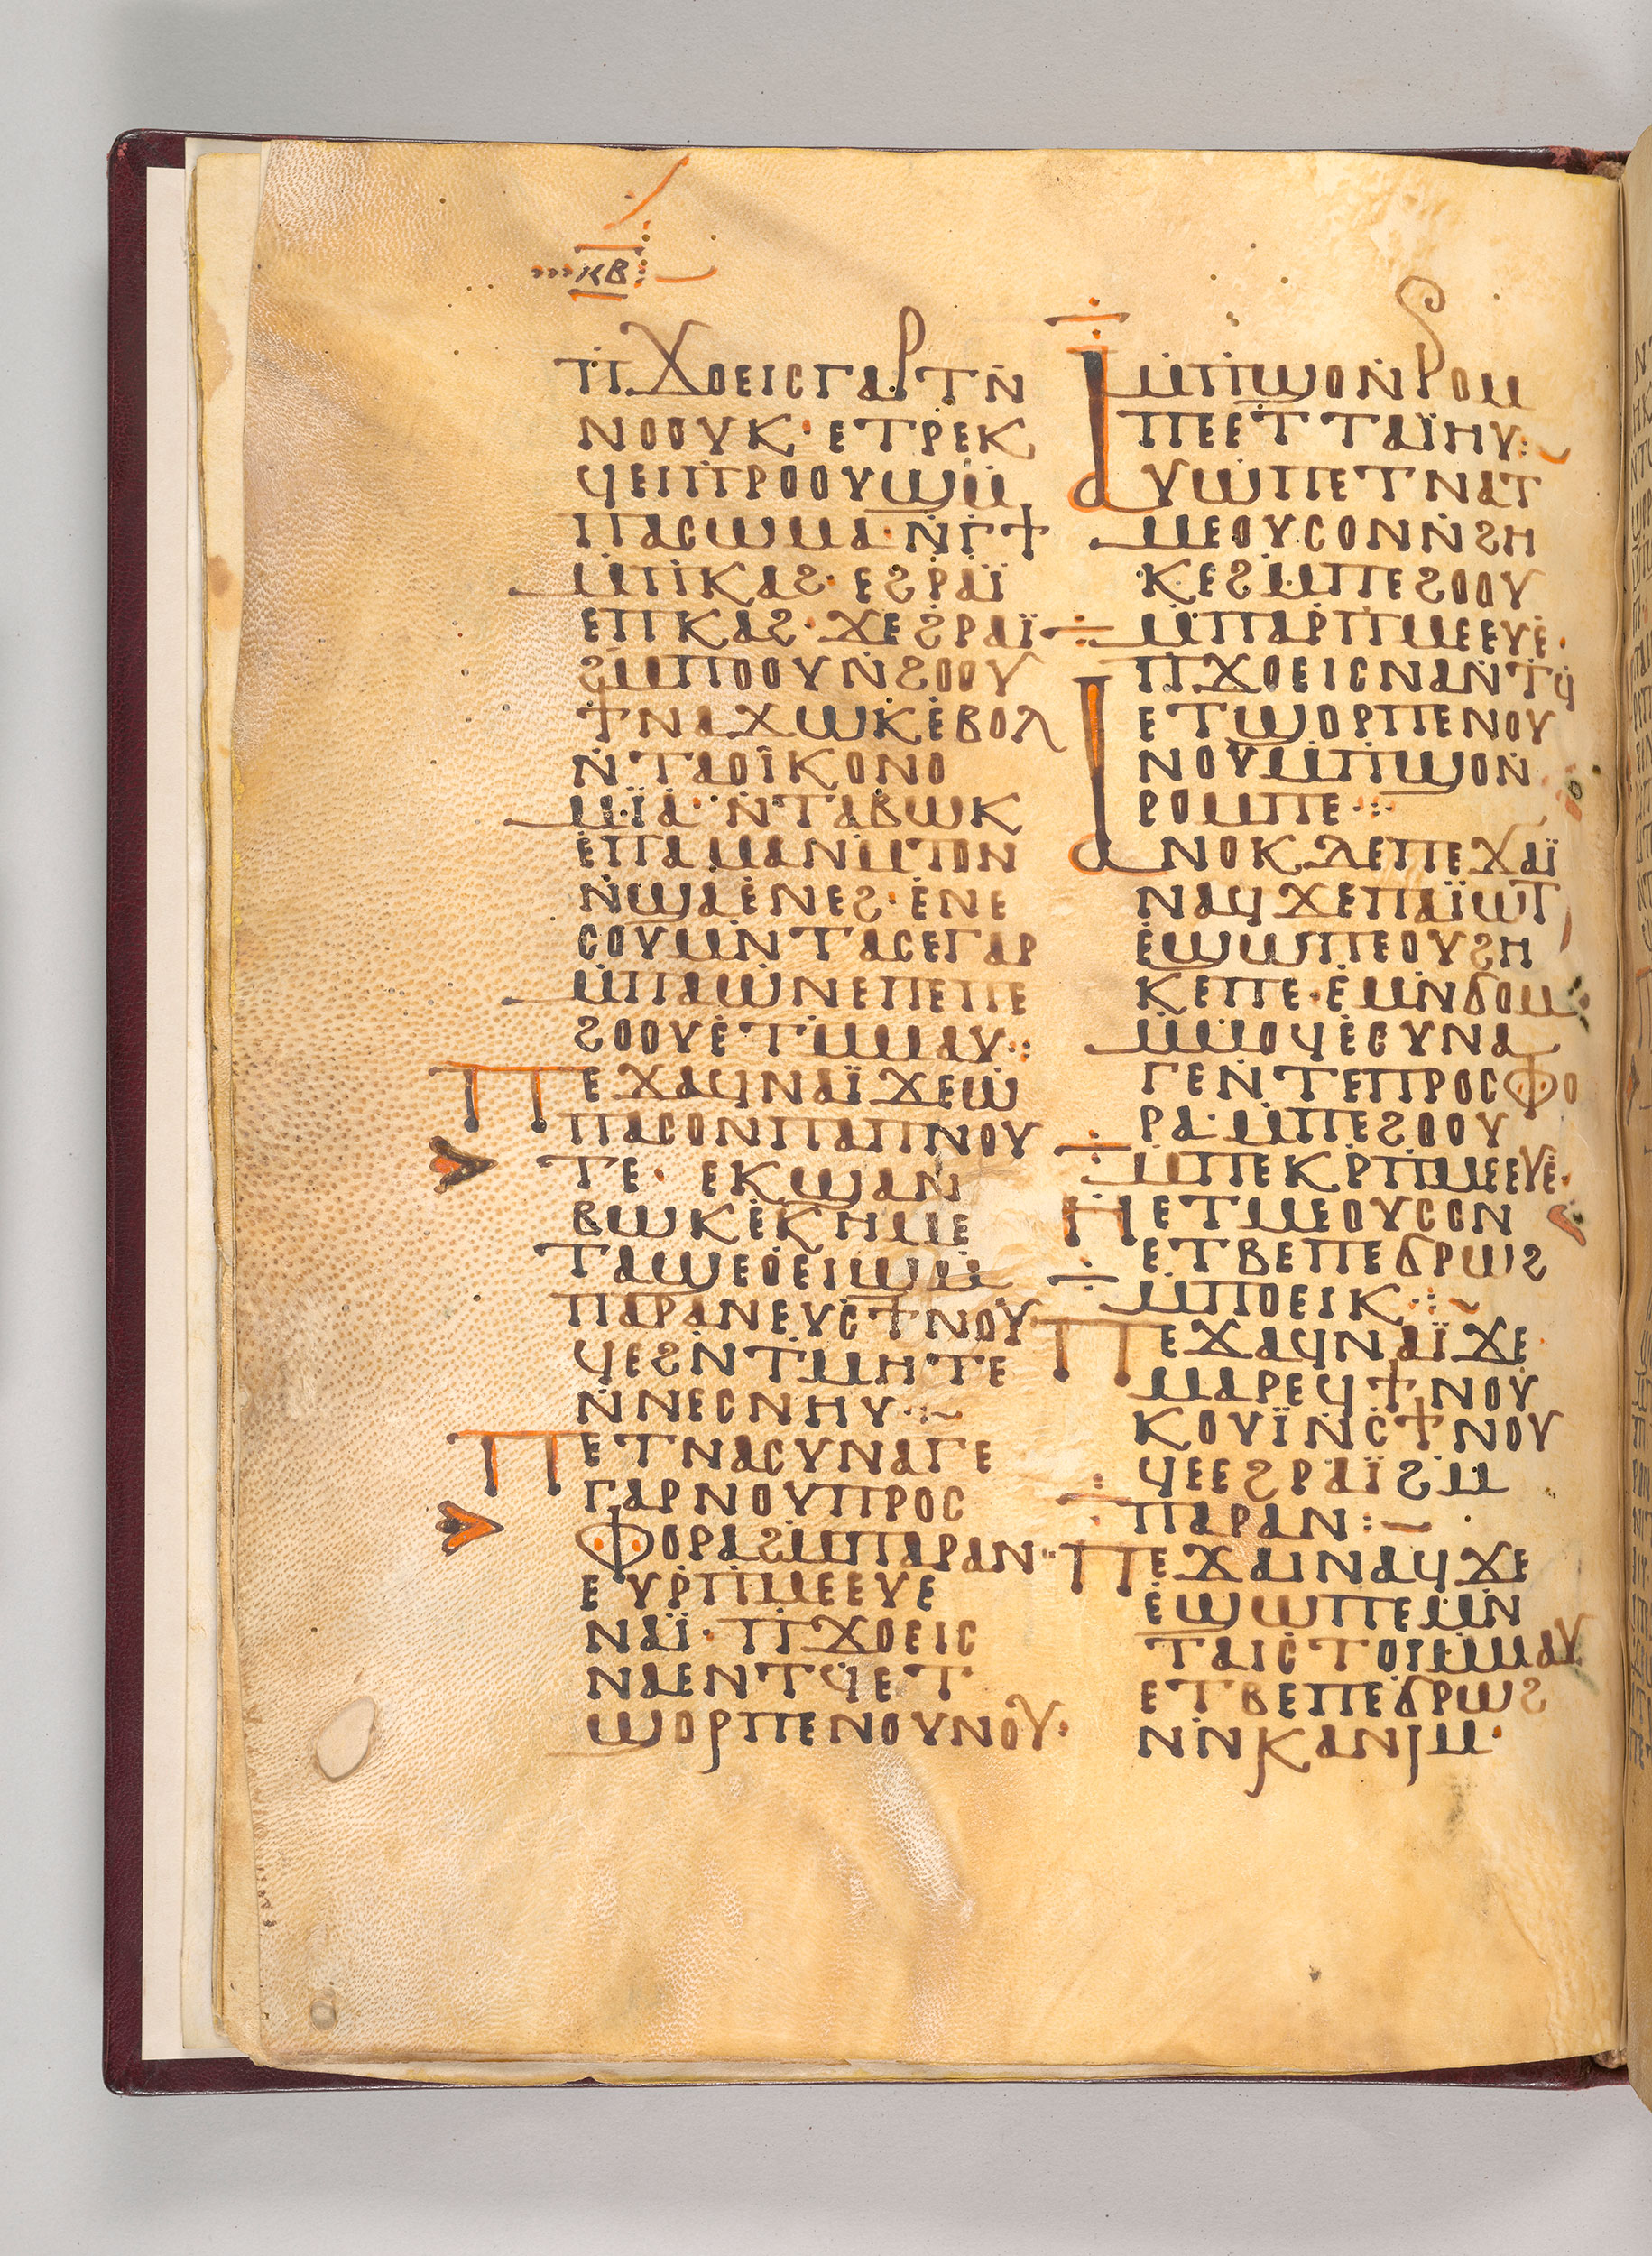 ⲕⲃ
ⲡϫⲟⲉⲓⲥⲅⲁⲣⲧⲛ̇
ⲛⲟⲟⲩⲕ· ⲉⲧⲣⲉⲕ
ϥⲉⲓⲡⲣⲟⲟⲩϣⲙ̇
ⲡⲁⲥⲱⲙⲁ· ⲛ̇ⲅ̇ϯ
ⲙ̇ⲡ̇ⲕⲁϩ· ⲉϩⲣⲁⲓ̈
ⲉⲡⲕⲁϩ· ϫⲉϩⲣⲁⲓ̈
ϩⲙⲡⲟⲟⲩⲛ̇ϩⲟⲟⲩ
ϯⲛⲁϫⲱⲕⲉ̇ⲃⲟⲗ
ⲛ̇ⲧⲁⲟⲓ̈ⲕⲟⲛⲟ
ⲙⲓ̈ⲁ· ⲛ̇ⲧⲁⲃⲱⲕ
ⲉ̇ⲡⲁⲙⲁⲛⲙ̇ⲧⲟⲛ
ⲛ̇ϣⲁⲉ̇ⲛⲉϩ· ⲉ̇ⲛⲉ
ⲥⲟⲩⲙⲛ̇ⲧⲁⲥⲉⲅⲁⲣ
ⲙ̇ⲡⲁⲱ̇ⲛⲉⲡⲉⲡⲉ
ϩⲟⲟⲩⲉ̇ⲧⲙ̇ⲙⲁⲩ:
ⲡⲉϫⲁϥⲛⲁⲓ̈ϫⲉⲱ̇
ⲡⲁⲥⲟⲛⲡⲁⲡⲛⲟⲩ
ⲧⲉ· ⲉⲕϣⲁⲛ
ⲃⲱⲕⲉ̇ⲕⲏⲙⲉ
ⲧⲁϣⲉⲟⲉⲓϣⲙ̇
ⲡⲁⲣⲁⲛⲉⲩⲥϯⲛⲟⲩ
ϥⲉϩⲛ̇ⲧⲙⲏⲧⲉ
ⲛ̇ⲛⲉⲥⲛⲏⲩ·:~
ⲡⲉⲧⲛⲁⲥⲩⲛⲁⲅⲉ
ⲅⲁⲣⲛⲟⲩⲡⲣⲟⲥ
ⲫⲟⲣⲁϩⲙⲡⲁⲣⲁⲛ··
ⲉⲩⲣ̇ⲡ̇ⲙⲉⲉⲩⲉ
ⲛⲁⲓ̈· ⲡ̇ϫⲟⲉⲓⲥ
ⲛⲁⲉⲛⲧϥ̇ⲉⲧ
ϣⲟⲣⲡⲉⲛⲟⲩⲛⲟⲩ·
ⲙ̇ⲡ̇ϣⲟⲛ̇ⲣⲟⲙ
ⲡⲉⲉⲧⲧⲁⲓ̈ⲏⲩ:~
ⲁⲩⲱⲡⲉⲧⲛⲁⲧ
ⲙⲉⲟⲩⲥⲟⲛⲛ̇ϩⲏ
ⲕⲉϩⲙ̇ⲡⲉϩⲟⲟⲩ
ⲙ̇ⲡⲁⲣⲡ̇ⲙⲉⲉⲩⲉ̇·
ⲡ̇ϫⲟⲉⲓⲥⲛⲁⲛ̇ⲧϥ̇
ⲉⲧϣⲟⲣⲡⲉⲛⲟⲩ
ⲛⲟⲩⲙ̇ⲡ̇ϣⲟⲛ̇
ⲣⲟⲙⲡⲉ·:·
ⲁⲛⲟⲕⲇⲉⲡⲉϫⲁⲓ̈
ⲛⲁϥϫⲉⲡⲁⲓ̈ⲱⲧ
ⲉ̇ϣⲱⲡⲉⲟⲩϩⲏ
ⲕⲉⲡⲉ· ⲉ̇ⲙⲛ̇ϭⲟⲙ
ⲙ̇ⲙⲟϥⲉ̇ⲥⲩⲛⲁ
ⲅⲉⲛ̇ⲧⲉⲡⲣⲟⲥⲫⲟ
ⲣⲁ· ⲙ̇ⲡⲉϩⲟⲟⲩ
ⲙ̇ⲡⲉⲕⲣ̇ⲡⲙⲉⲉⲩⲉ̇·
ⲏⲉⲧⲙⲉⲟⲩⲥⲟⲛ
ⲉⲧⲃⲉⲡⲉϭⲣⲱϩ
ⲙⲡⲟⲉⲓⲕ·:~
ⲡⲉϫⲁϥⲛⲁⲓ̈ϫⲉ·
ⲙⲁⲣⲉϥϯⲛⲟⲩ
ⲕⲟⲩⲓ̈ⲛ̇ⲥϯⲛⲟⲩ
ϥⲉⲉϩⲣⲁⲓ̈ϩⲙ̇
ⲡⲁⲣⲁⲛ:~
ⲡⲉϫⲁⲓⲛⲁϥϫⲉ
ⲉ̇ϣⲱⲡⲉⲙⲛ̇
ⲧⲁⲓⲥⲧⲟⲓⲙ̇ⲙⲁⲩ
ⲉⲧⲃⲉⲡⲉϭⲣⲱϩ
ⲛ̇ⲛ̇ⲕⲁⲛⲓⲙ·